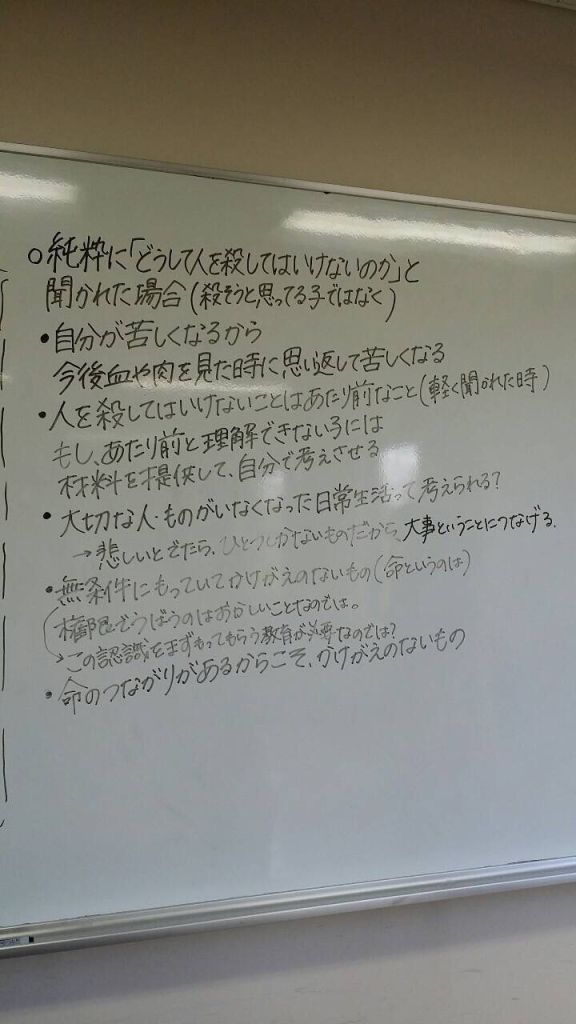 ○純粋に「どうして人を殺してはいけないのか」と
聞かれた場合(殺そうと思ってる子ではなく)
•自分が苦しくなるから
今後血や肉を見た時に思い返して苦しくなる
•人を殺してはいけないことはあたり前なこと(軽く聞かれた時)
もし、あたり前と理解できない子には
材料を提供して、自分で考えさせる
•大切な人・ものがいなくなった日常生活って考えられる?
→悲しいとでたら、ひとつしかないものだから、大事ということにつなげる.
•無条件にもっていてかけがえのないもの(命というのは)
権限でうばうのはおかしいことなのでは。
→この認識をまずもってもらう教育が必要なのでは?
•命のつながりがあるからこそ、かけがえのないもの